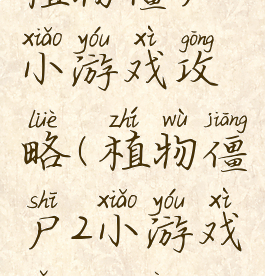 xiǎo yóu xì gōng
小游戏攻
lüè zhí wù jiāng
略(植物僵
shī xiǎo yóu xì
尸2小游戏